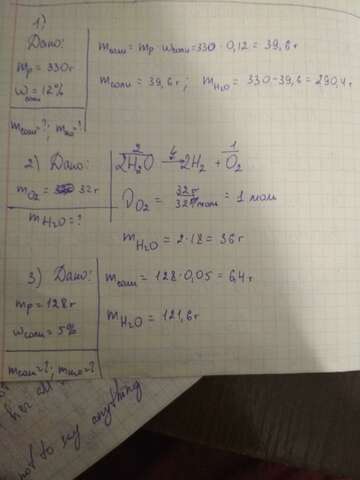 1)
Дано:
mр = 330г
wсоли = 12%
mсоли=?; mH₂O=?
mсоли = mр · wсоли = 330 · 0,12 = 39,6г
mсоли = 39,6г; mH₂O = 330-39,6 = 290,4г
2) Дано:
mO₂ = 32г
mH₂O = ?
2 1
2H₂O → 2H₂ + O₂
νO₂ = 32г / 32г/моль = 1 моль
mH₂O = 2·18 = 36г
3) Дано:
mр = 128г
wсоли = 5%
mсоли=?; mH₂O=?
mсоли = 128·0,05 = 6,4г
mH₂O = 121,6г
her all
not to say anything